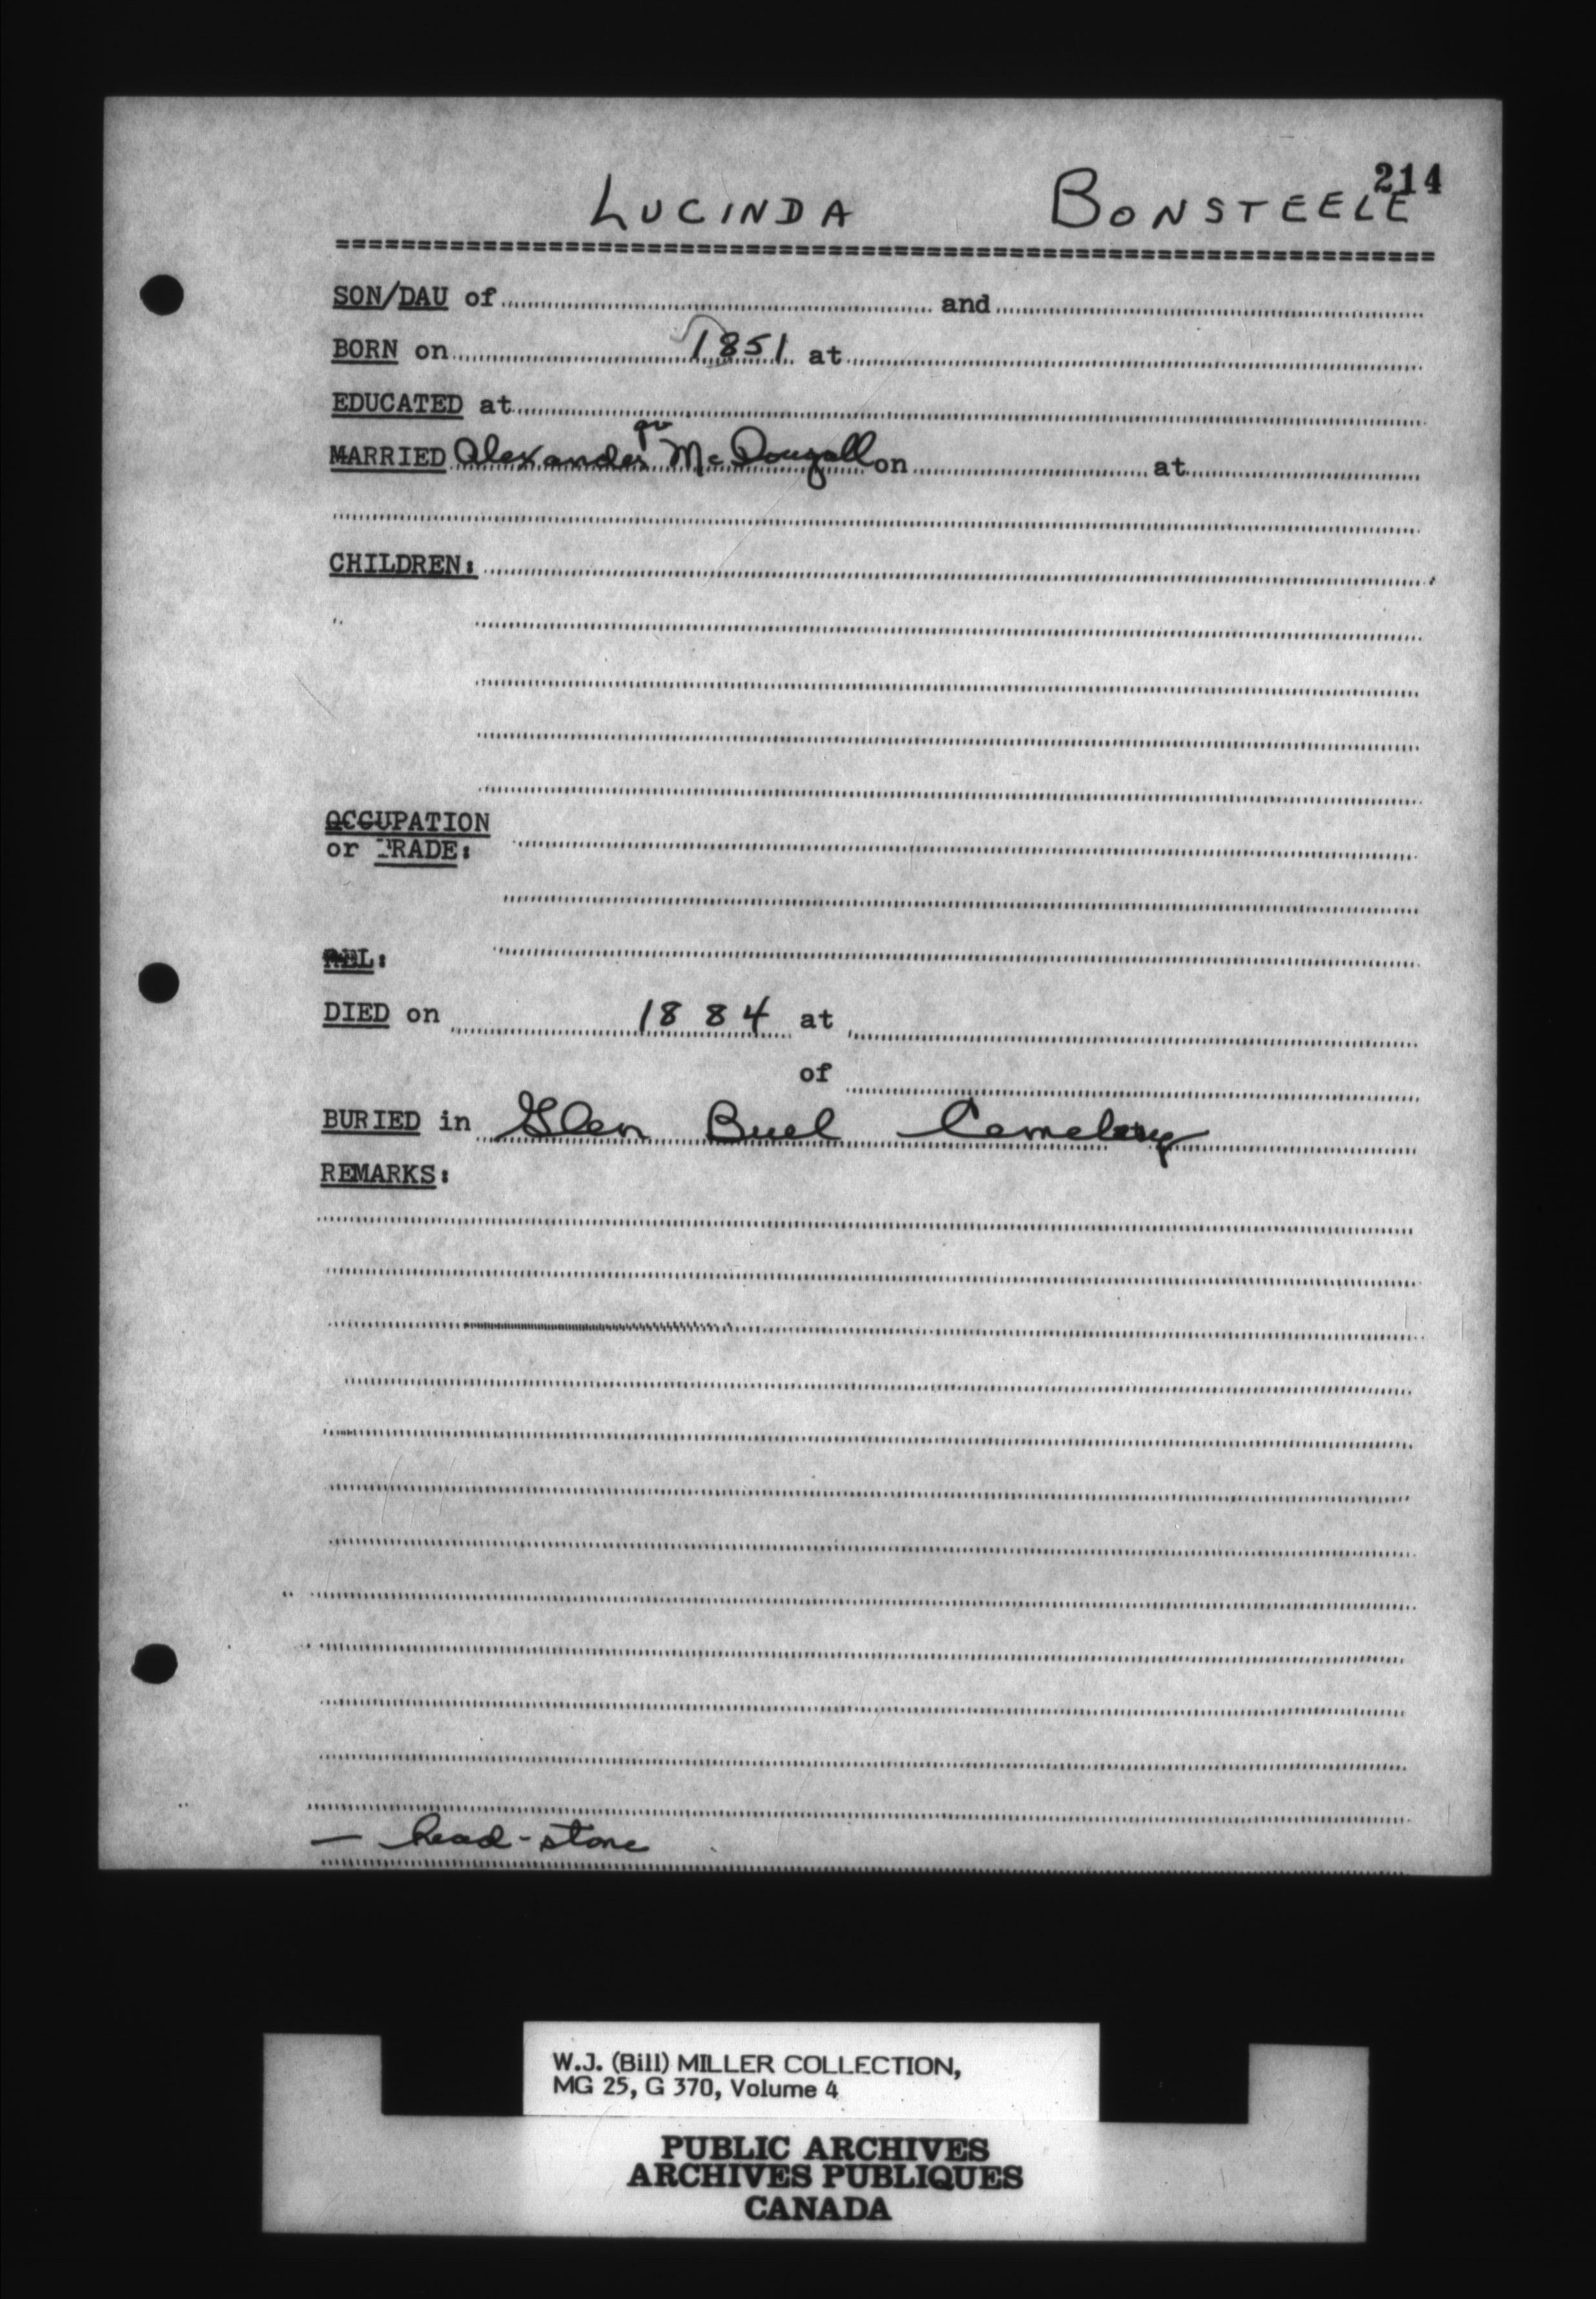 214
LUCINDA BONSTEELE
SON/DAU of and
BORN on 1851 at
EDUCATED at
qv
MARRIED Alexander McDougall on at
CHILDREN:
OCCUPATION
or TRADE:
REL:
DIED on 1884 at
of
BURIED in Glen Buel Cemetery
REMARKS:
— head-stone
W.J. (Bill) MILLER COLLECTION,
MG 25, G 370, Volume 4
PUBLIC ARCHIVES
ARCHIVES PUBLIQUES
CANADA